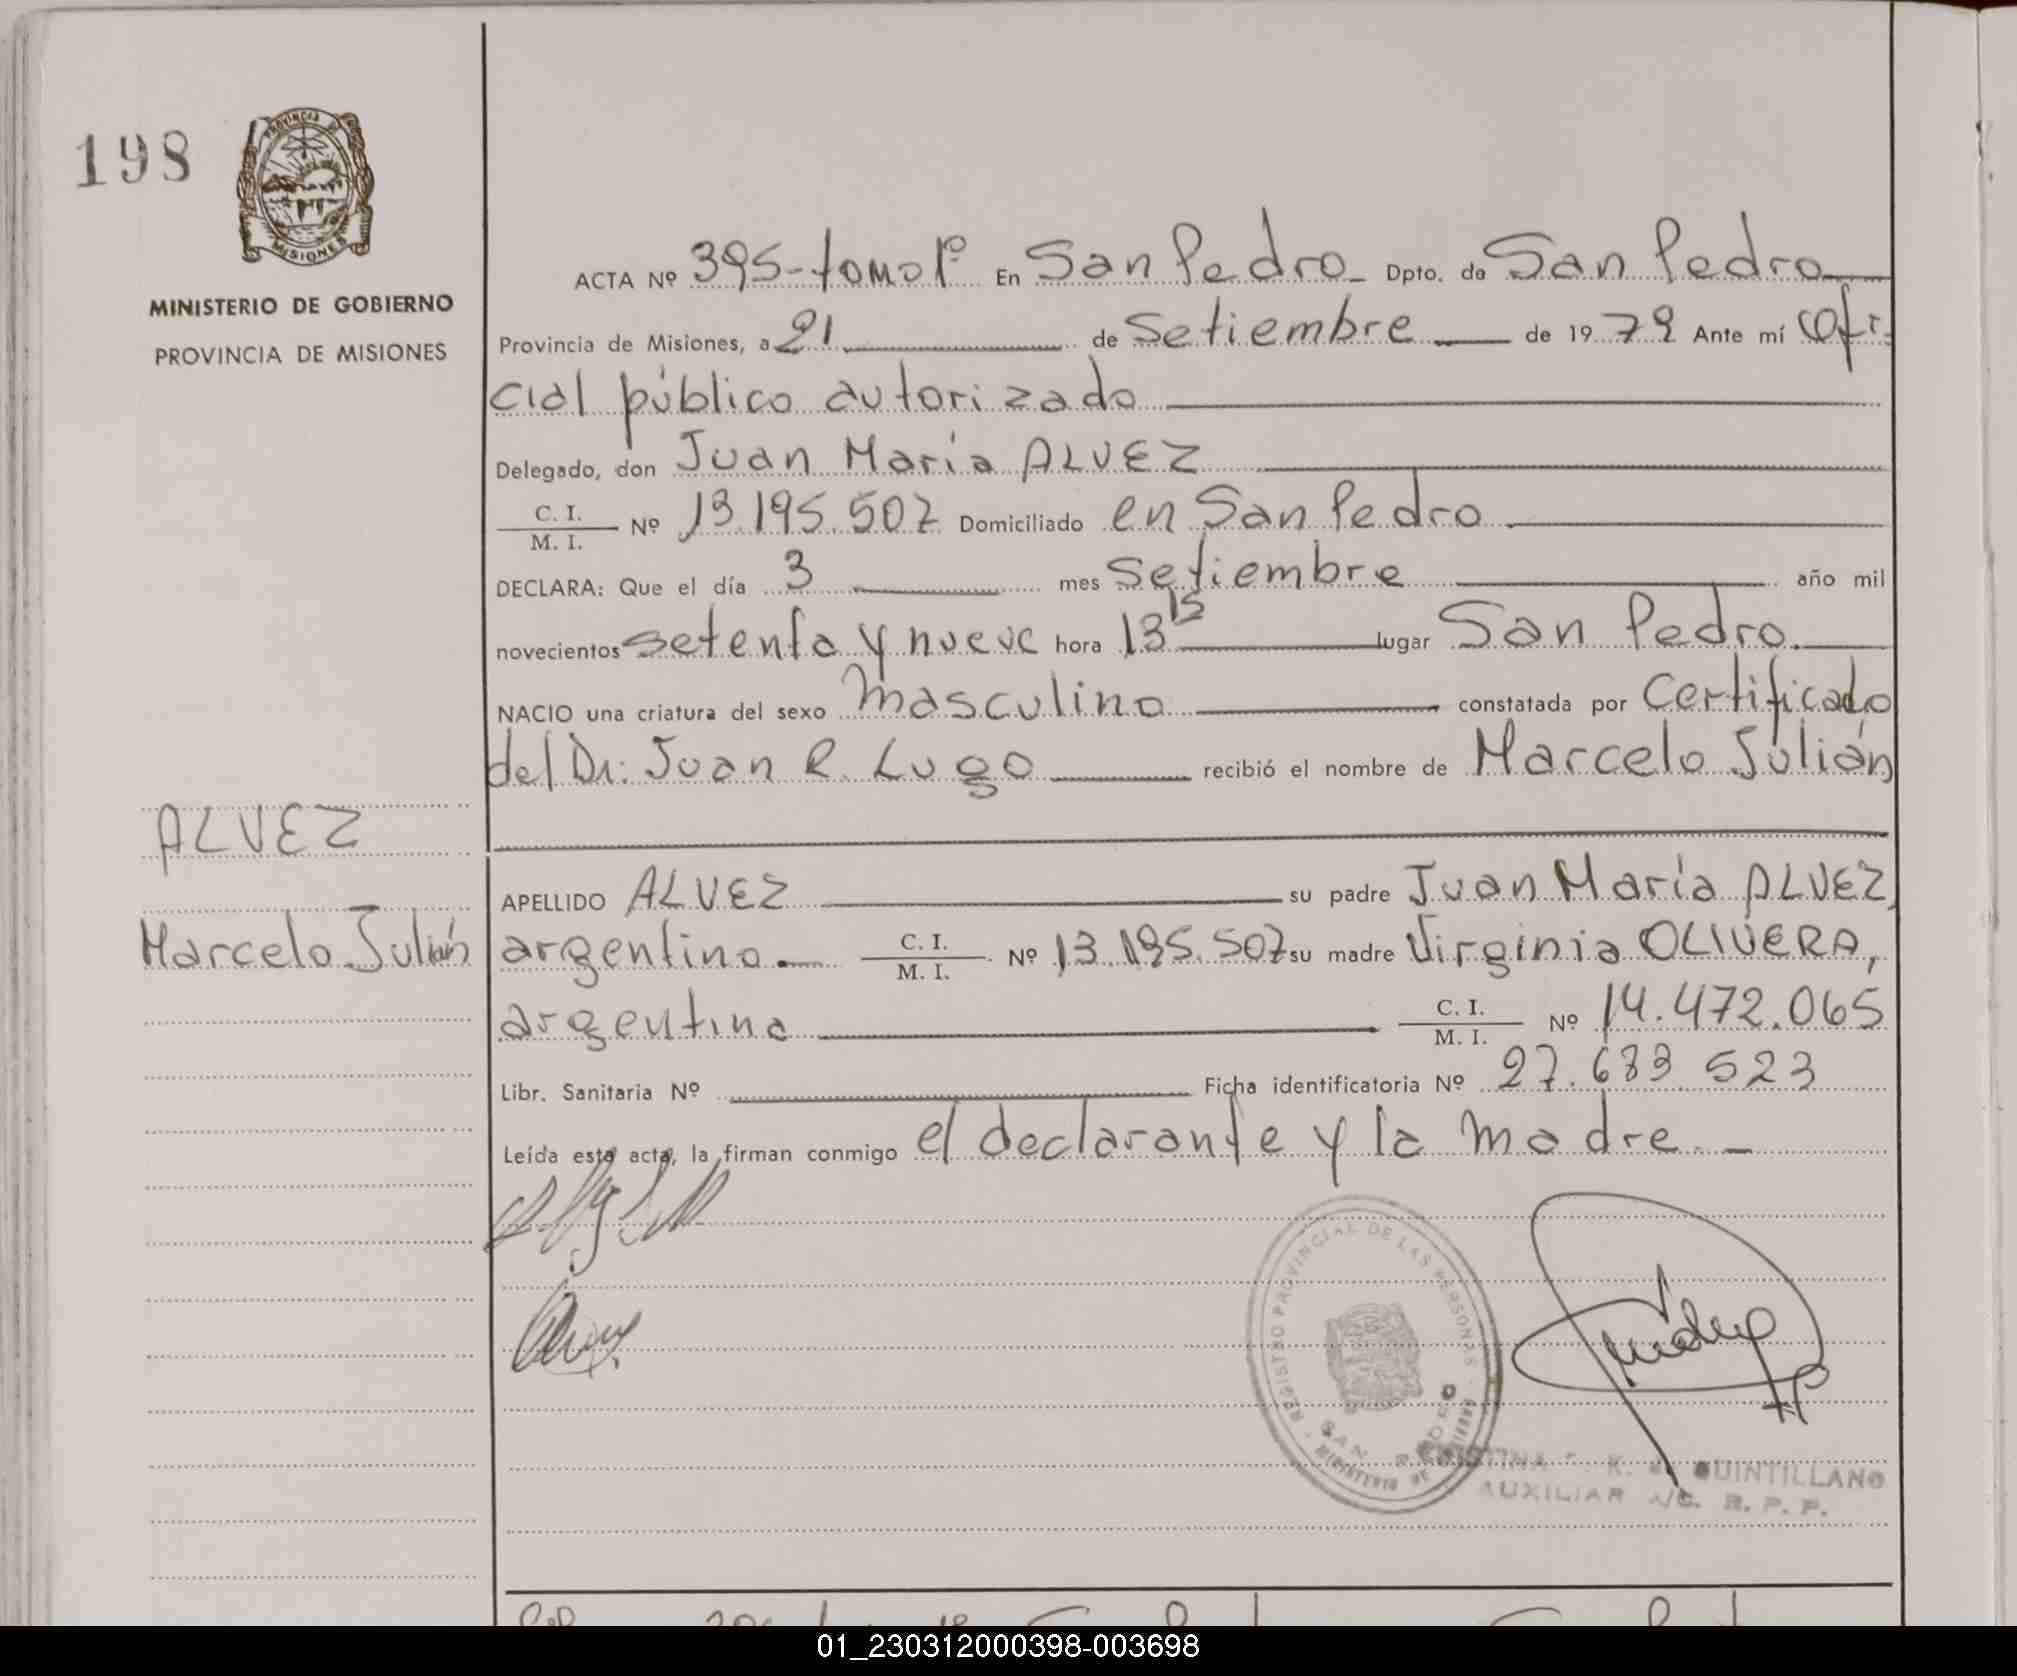 198
PROVINCIA DE
MISIONES
MINISTERIO DE GOBIERNO
PROVINCIA DE MISIONES
ACTA Nº 395-tomo 1º En San Pedro Dpto. de San Pedro
Provincia de Misiones, a 21 de Setiembre de 1979 Ante mí Ofi-
cial público autorizado
Delegado, don Juan María ALVEZ
C. I.
M. I. Nº 13.195.507 Domiciliado en San Pedro
DECLARA: Que el día 3 mes Setiembre año mil
novecientos setenta y nueve hora 13 15 lugar San Pedro.
NACIO una criatura del sexo masculino constatada por Certificado
del Dr. Juan R. Lugo recibió el nombre de Marcelo Julián
ALVEZ
Marcelo Julián
APELLIDO ALVEZ su padre Juan María ALVEZ,
argentino. C. I.
M. I. Nº 13.195.507 su madre Virginia OLIVERA,
argentina C. I.
M. I. Nº 14.472.065
Libr. Sanitaria Nº Ficha identificatoria Nº 27.633.523
Leída esta acta, la firman conmigo el declarante y la madre.-
REGISTRO PROVINCIAL DE LAS PERSONAS
SAN PEDRO
MINISTERIO DE GOBIERNO
QUINTILLANO
AUXILIAR A/C. R. P. P.
01_230312000398-003698